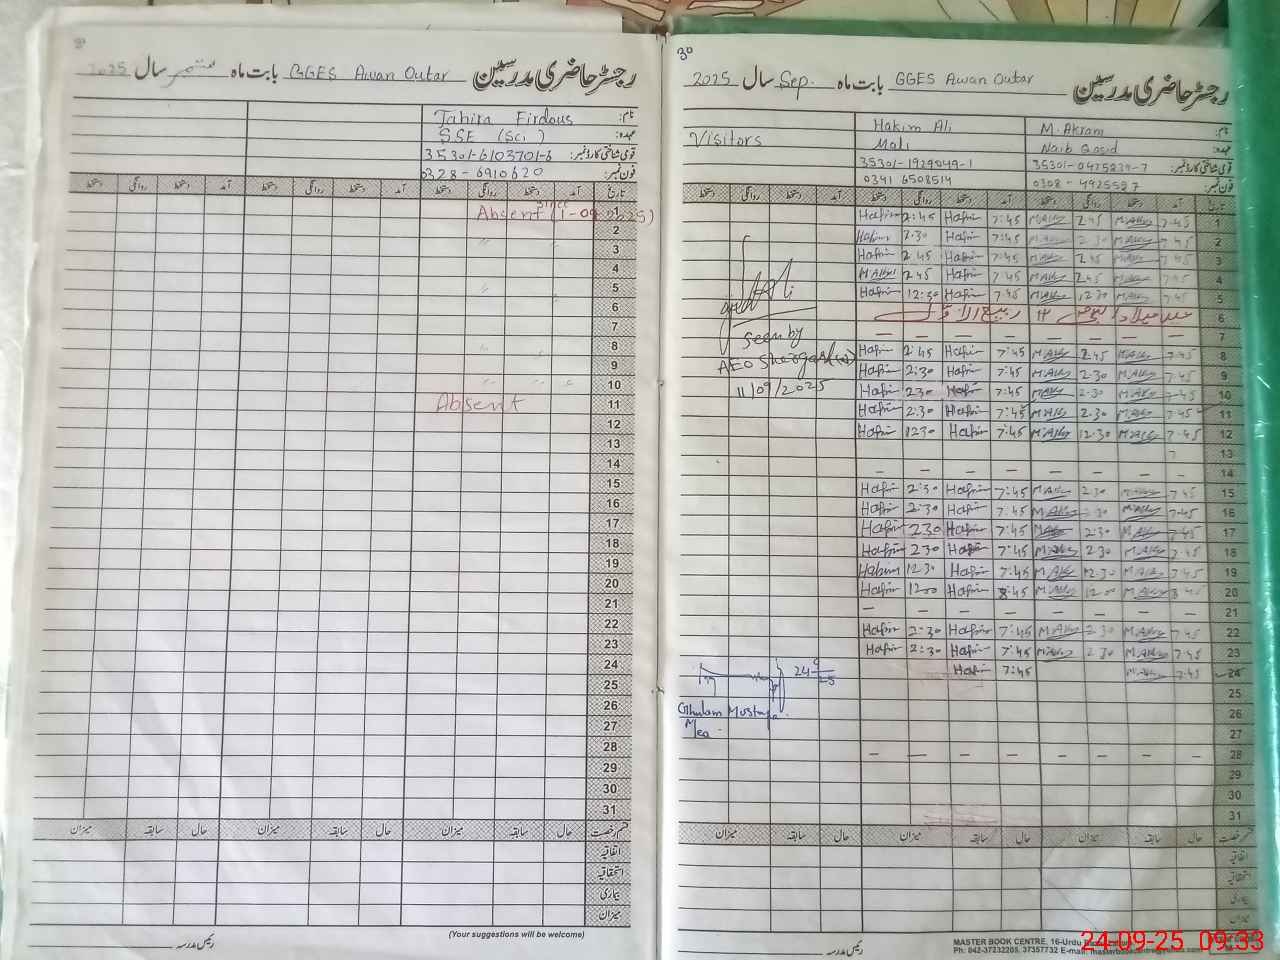 رجسٹر حاضری مدرسین بابت ماہ GGES Awan Outar ستمبر سال 2025
نام: Tahira Firdous
عہدہ: SSE (Sci)
قومی شناختی کارڈ نمبر: 35301-6103701-6
فون نمبر: 0328-6910620
تاریخ آمد دستخط روانگی دستخط آمد دستخط روانگی دستخط آمد دستخط روانگی دستخط
Absent since (1-09-2025)
2
3
4
5
6
7
8
9
10
11 Absent
12
13
14
15
16
17
18
19
20
21
22
23
24
25
26
27
28
29
30
31
قسم رخصت حال سابقہ میزان حال سابقہ میزان حال سابقہ میزان
اتفاقیہ
استحقاقیہ
بیماری
میزان
رئیس مدرسہ
(Your suggestions will be welcome)
30
رجسٹر حاضری مدرسین بابت ماہ GGES Awan Outar Sep. سال 2025
نام: M. Akram Hakim Ali Visitors
عہدہ: Naib Qasid Mali
قومی شناختی کارڈ نمبر: 35301-1929849-1
فون نمبر: 0308-4925587 0341 6508514
تاریخ آمد دستخط روانگی دستخط آمد دستخط روانگی دستخط آمد دستخط روانگی دستخط
Hakim 2:45 Hakim 7:45 M.Akram 2.45 M.Akram 7.45 1
Hakim 2.30 Hakim 7:45 M.Akram 2.30 M.Akram 7.45 2
Hakim 2.45 Hakim 7:45 M.Akram 2.45 M.Akram 7.45 3
M.Akram 2.45 Hakim 7:45 M.Akram 2.45 M.Akram 7.45 4
Hakim 12:30 Hakim 7:45 M.Akram 12.30 M.Akram 7.45 5
عید میلاد النبی ۱۲ ربیع الاول 6
— — — — — — — — 7
Hakim 2:45 Hakim 7:45 M.Akram 2.45 M.Akram 7.45 8
Hakim 2:30 Hakim 7:45 M.Akram 2.30 M.Akram 7.45 9
Hakim 2.30 Hakim 7:45 M.Akram 2.30 M.Akram 7.45 10
Hakim 2.30 Hakim 7:45 M.Akram 2.30 M.Akram 7.45 11
Hakim 12.30 Hakim 7:45 M.Akram 12.30 M.Akram 7.45 12
13
— — — — — — — — 14
Hakim 2:30 Hakim 7:45 M.Akram 2.30 M.Akram 7.45 15
Hakim 2.30 Hakim 7:45 M.Akram 2.30 M.Akram 7.45 16
Hakim 2.30 Hakim 7:45 M.Akram 2.30 M.Akram 7.45 17
Hakim 2.30 Hakim 7:45 M.Akram 2.30 M.Akram 7.45 18
Hakim 12.30 Hakim 7:45 M.Akram 12.30 M.Akram 7.45 19
Hakim 12.00 Hakim 8:45 M.Akram 12.00 M.Akram 8.45 20
— — — — — — — — 21
Hakim 2:30 Hakim 7:45 M.Akram 2.30 M.Akram 7.45 22
Hakim 2:30 Hakim 7:45 M.Akram 2.30 M.Akram 7.45 23
Hakim 7:45 M.Akram 7.45 24
25
26
27
— — — — — — — — 28
29
30
31
seen by
AEO Shergarh (w)
11/09/2025
24-9-25
Ghulam Mustafa
Mea
قسم رخصت حال سابقہ میزان حال سابقہ میزان حال سابقہ میزان
اتفاقیہ
استحقاقیہ
بیماری
میزان
رئیس مدرسہ
MASTER BOOK CENTRE, 16-Urdu
Ph: 042-37232205, 37357732 E-mail:
24-09-25 09:33